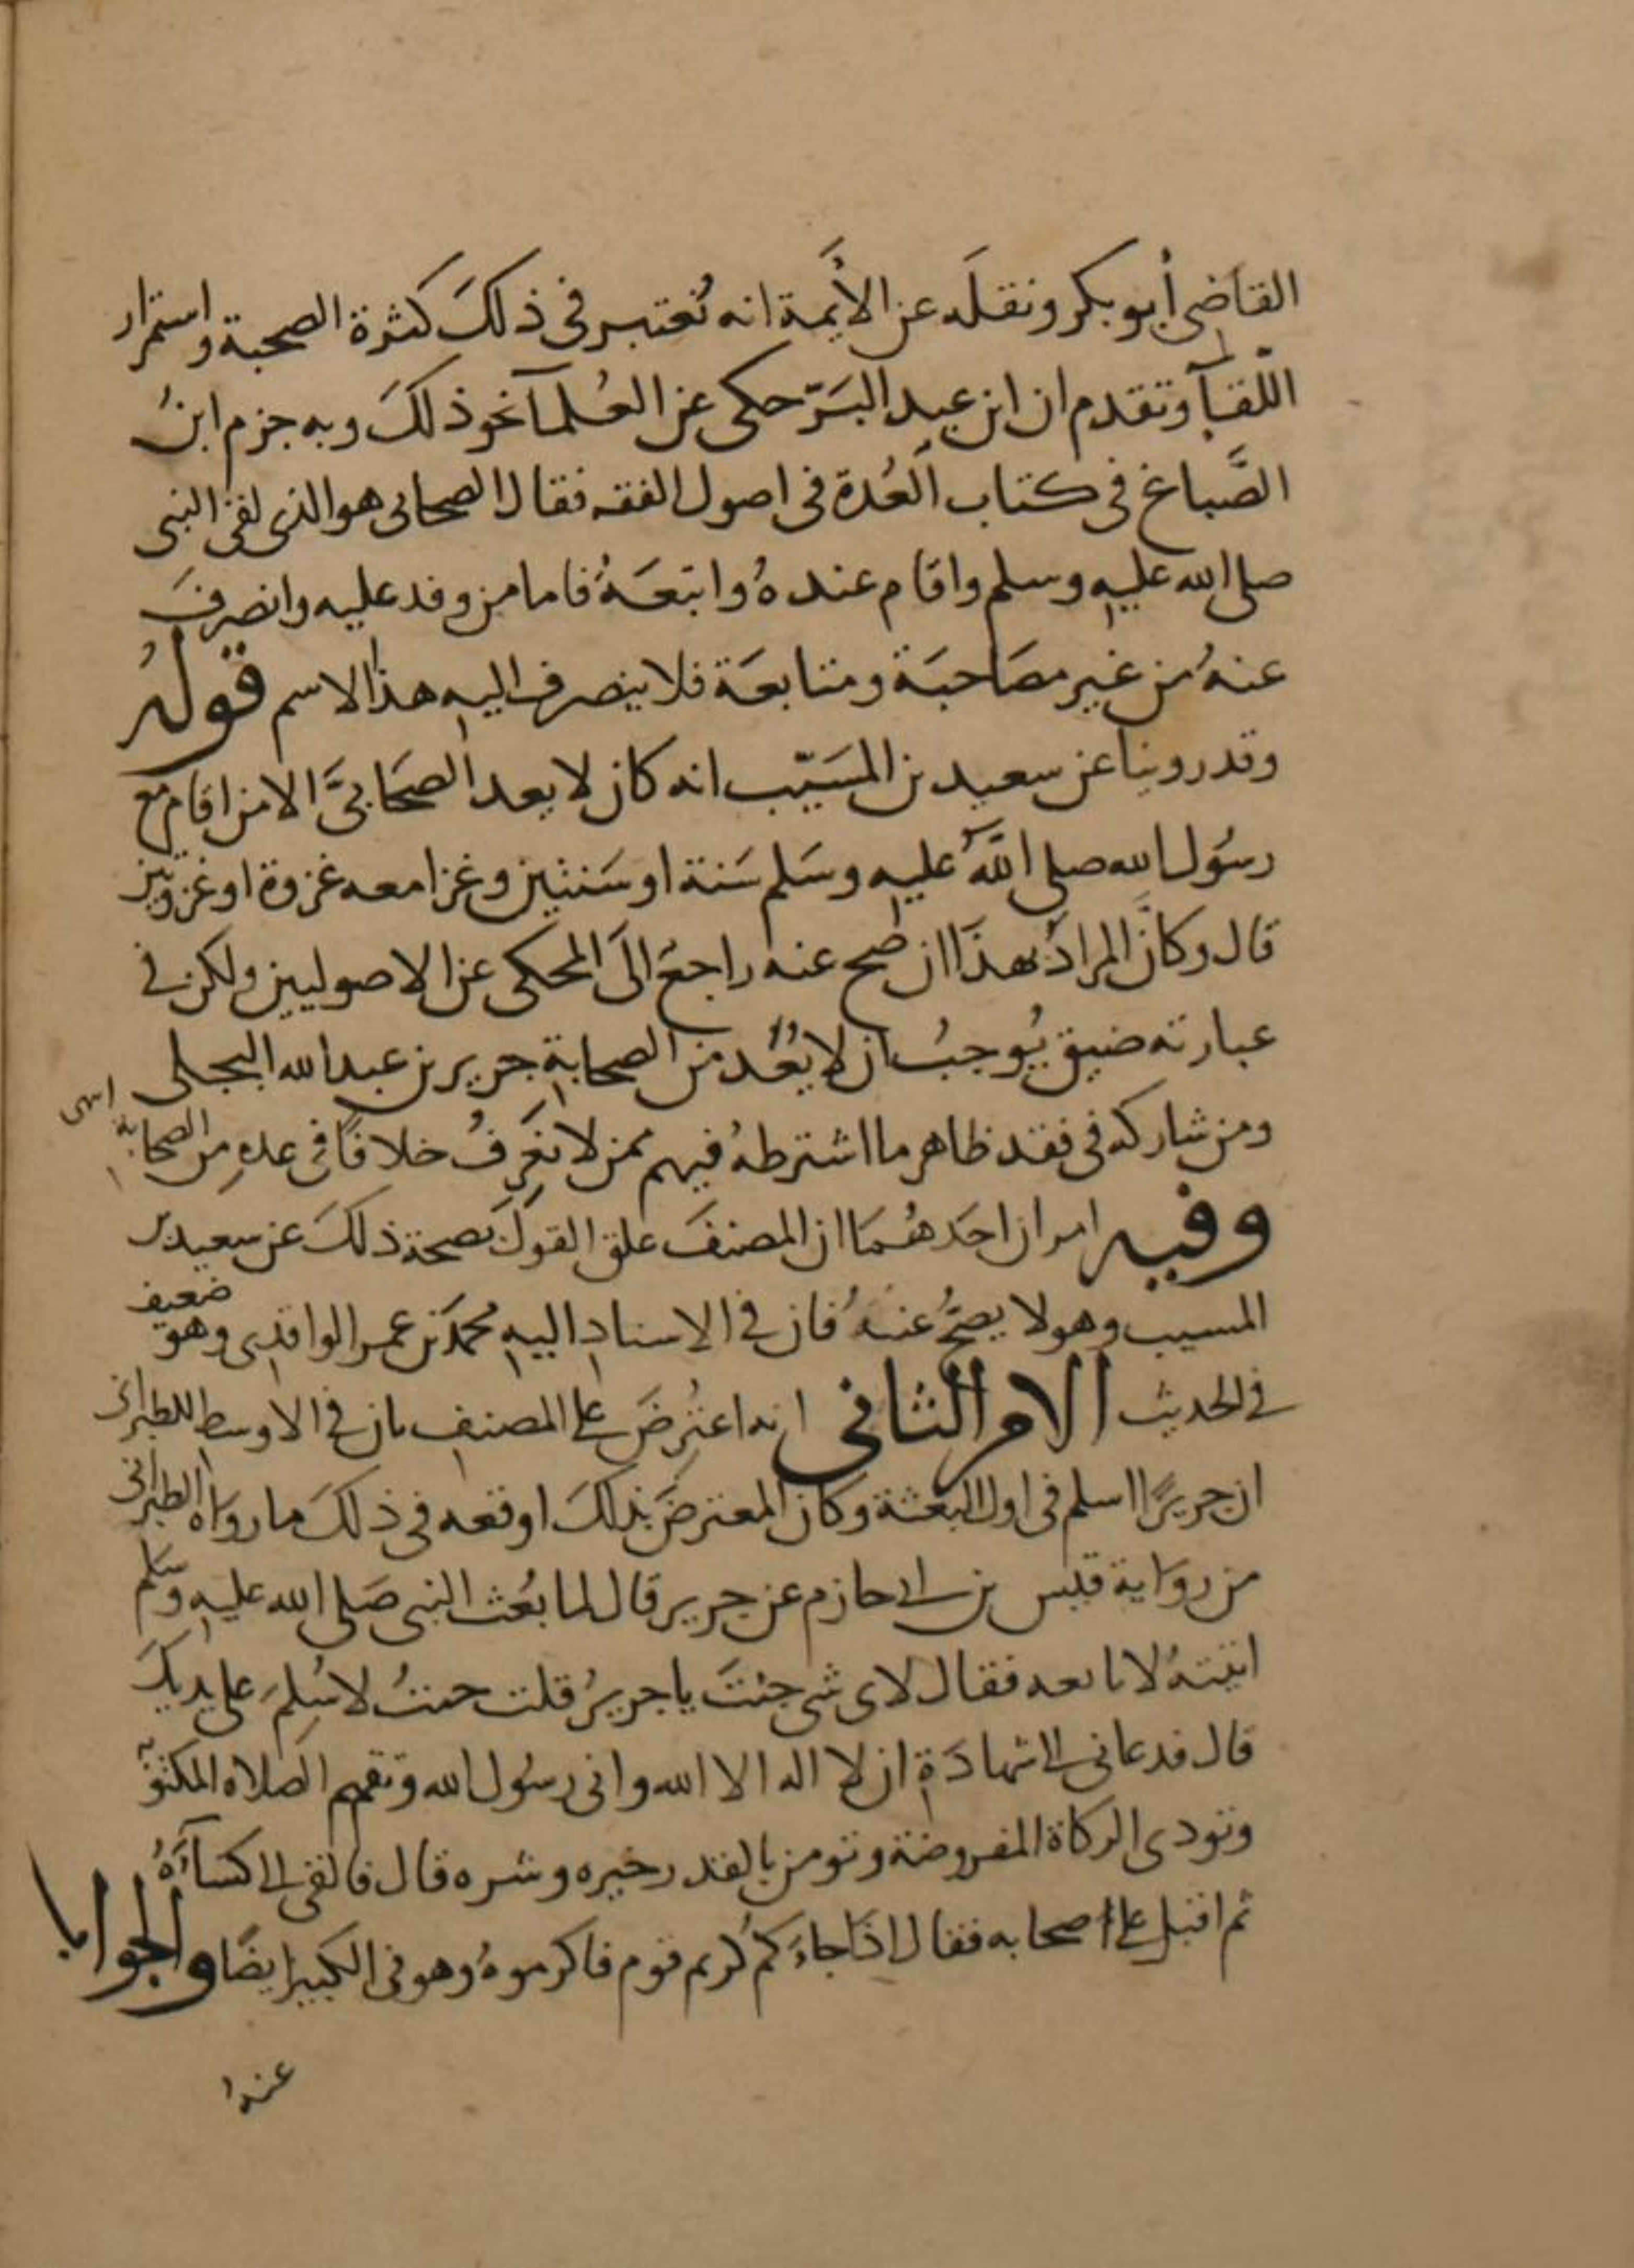 القاضى أبو بكر ونقله عن الأيمة انه تعتبر فى ذلك كثرة الصحبة واستمرار
اللقآ وتقدم ان ابن عبد البرّ حكى عن العُلمآ نحو ذلك وبه جزم ابنُ
الصَّباغ فى كتاب العُدة فى اصول الفقه فقال الصحابى هو الذى لقى النبى
صلى الله عليه وسلم واقام عنده واتبعَهُ فاما من وفد عليه وانصرفَ
عنهُ من غير مصَاحبَة ومتابعَة فلا ينصرف اليه هذا الاسم قولهُ
وقد روينا عن سعيد بن المسَيّب انه كان لا يعد الصحَابىَّ الا من اقام مع
رسُول الله صلى اللَّهُ عليه وسَلم سَنة او سَنتين وغزا معه غزوة او غزوتين
قال وكانَّ المرادُ بهذا ان صح عنه راجع الَى المحكى عن الاصوليين ولكن فى
عبارته ضيق يُوجبُ ان لا يُعُد من الصحابة جرير بن عبد الله البجلى
ومن شاركه فى فقد ظاهر ما اشترطهُ فيهم ممن لا نعَرِفُ خلافًا فى عدهِ من الصحابة انتهى
وفيه امران احَدهُمَا ان المصنفَ علق القولَ بصحة ذلكَ عن سعيد بن
المسيب وهو لا يصحُّ عنهُ فان فى الاسناد اليه محمدَ بن عمر الواقدى وهو ضعيف
فى الحديث الامر الثانى انه اعتُرضَ على المصنف بان فى الاوسط للطبرانى
ان جريرًا اسلم فى اول البعثة وكان المعترضَ بذلكَ اوقعه فى ذلكَ ما روَاه الطبرانى
من روَاية قيس بن ابى حازم عن جرير قال لما بُعث النبى صَلى الله عليه وسَلم
اتيتهُ لابايعه فقال لاى شى جئتَ يا جريرُ قلت جئتُ لاسُلِمَ على يديكَ
قال فدعانى الى شهادَة ان لا اله الا الله وانى رسُول الله وتقيم الصلاه المكتوبة
وتودى الزكاة المفروضة وتومن بالقدر خيره وشره قال فالقى الى كسآءَهُ
ثم اقبل على اصحابه فقال اذَا جاءَكم كريم قوم فاكرموهُ وهو فى الكبير ايضًا والجواب
عنه